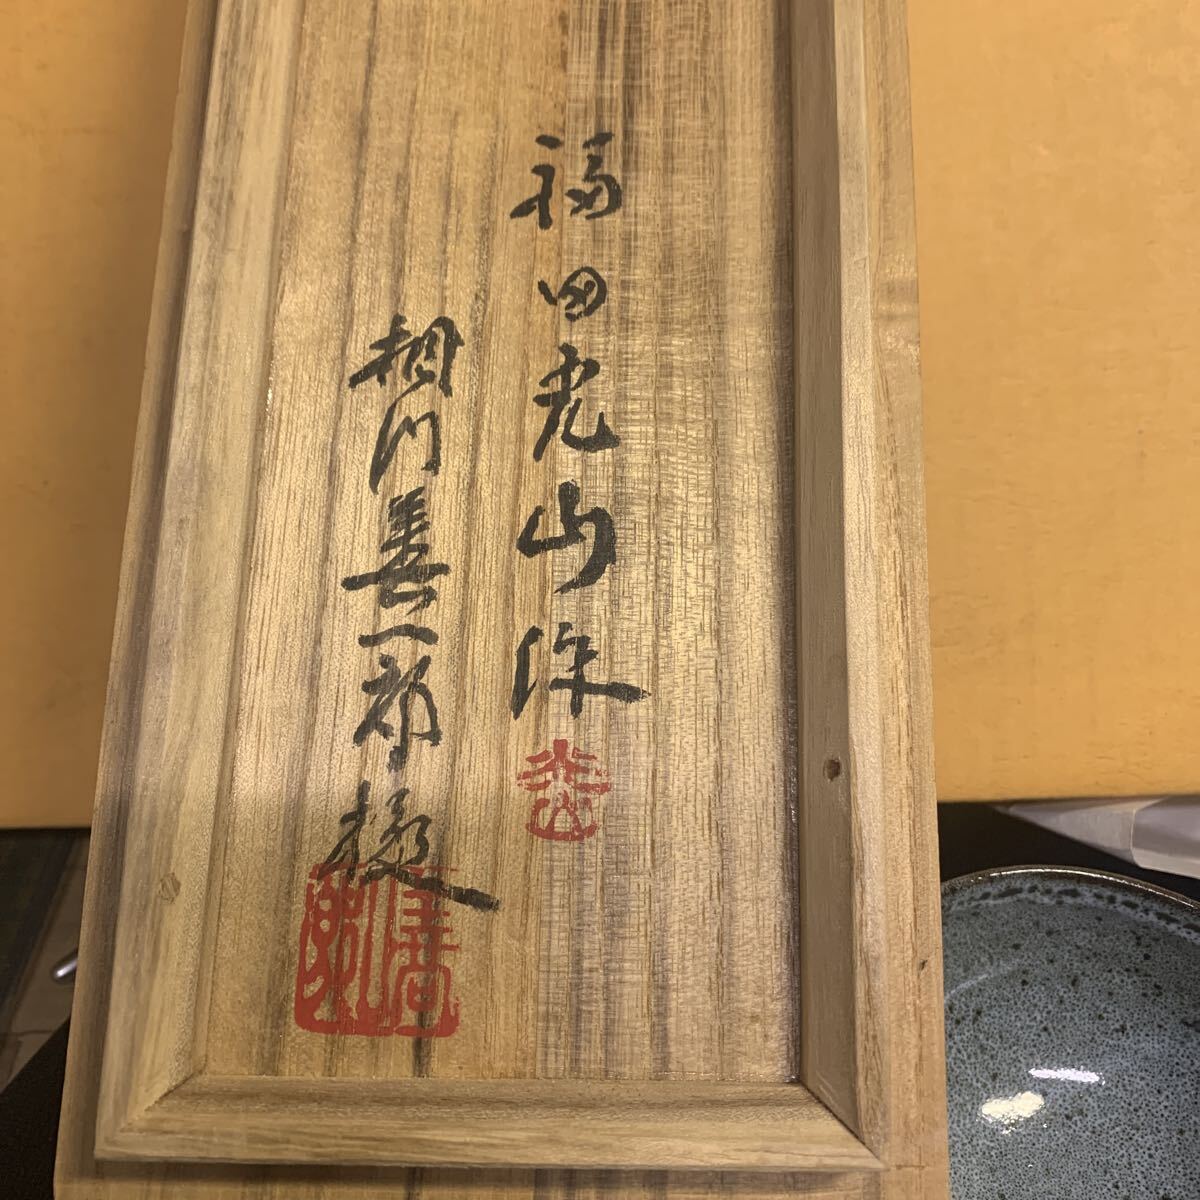 福田光山作
光山
相川善一郎極